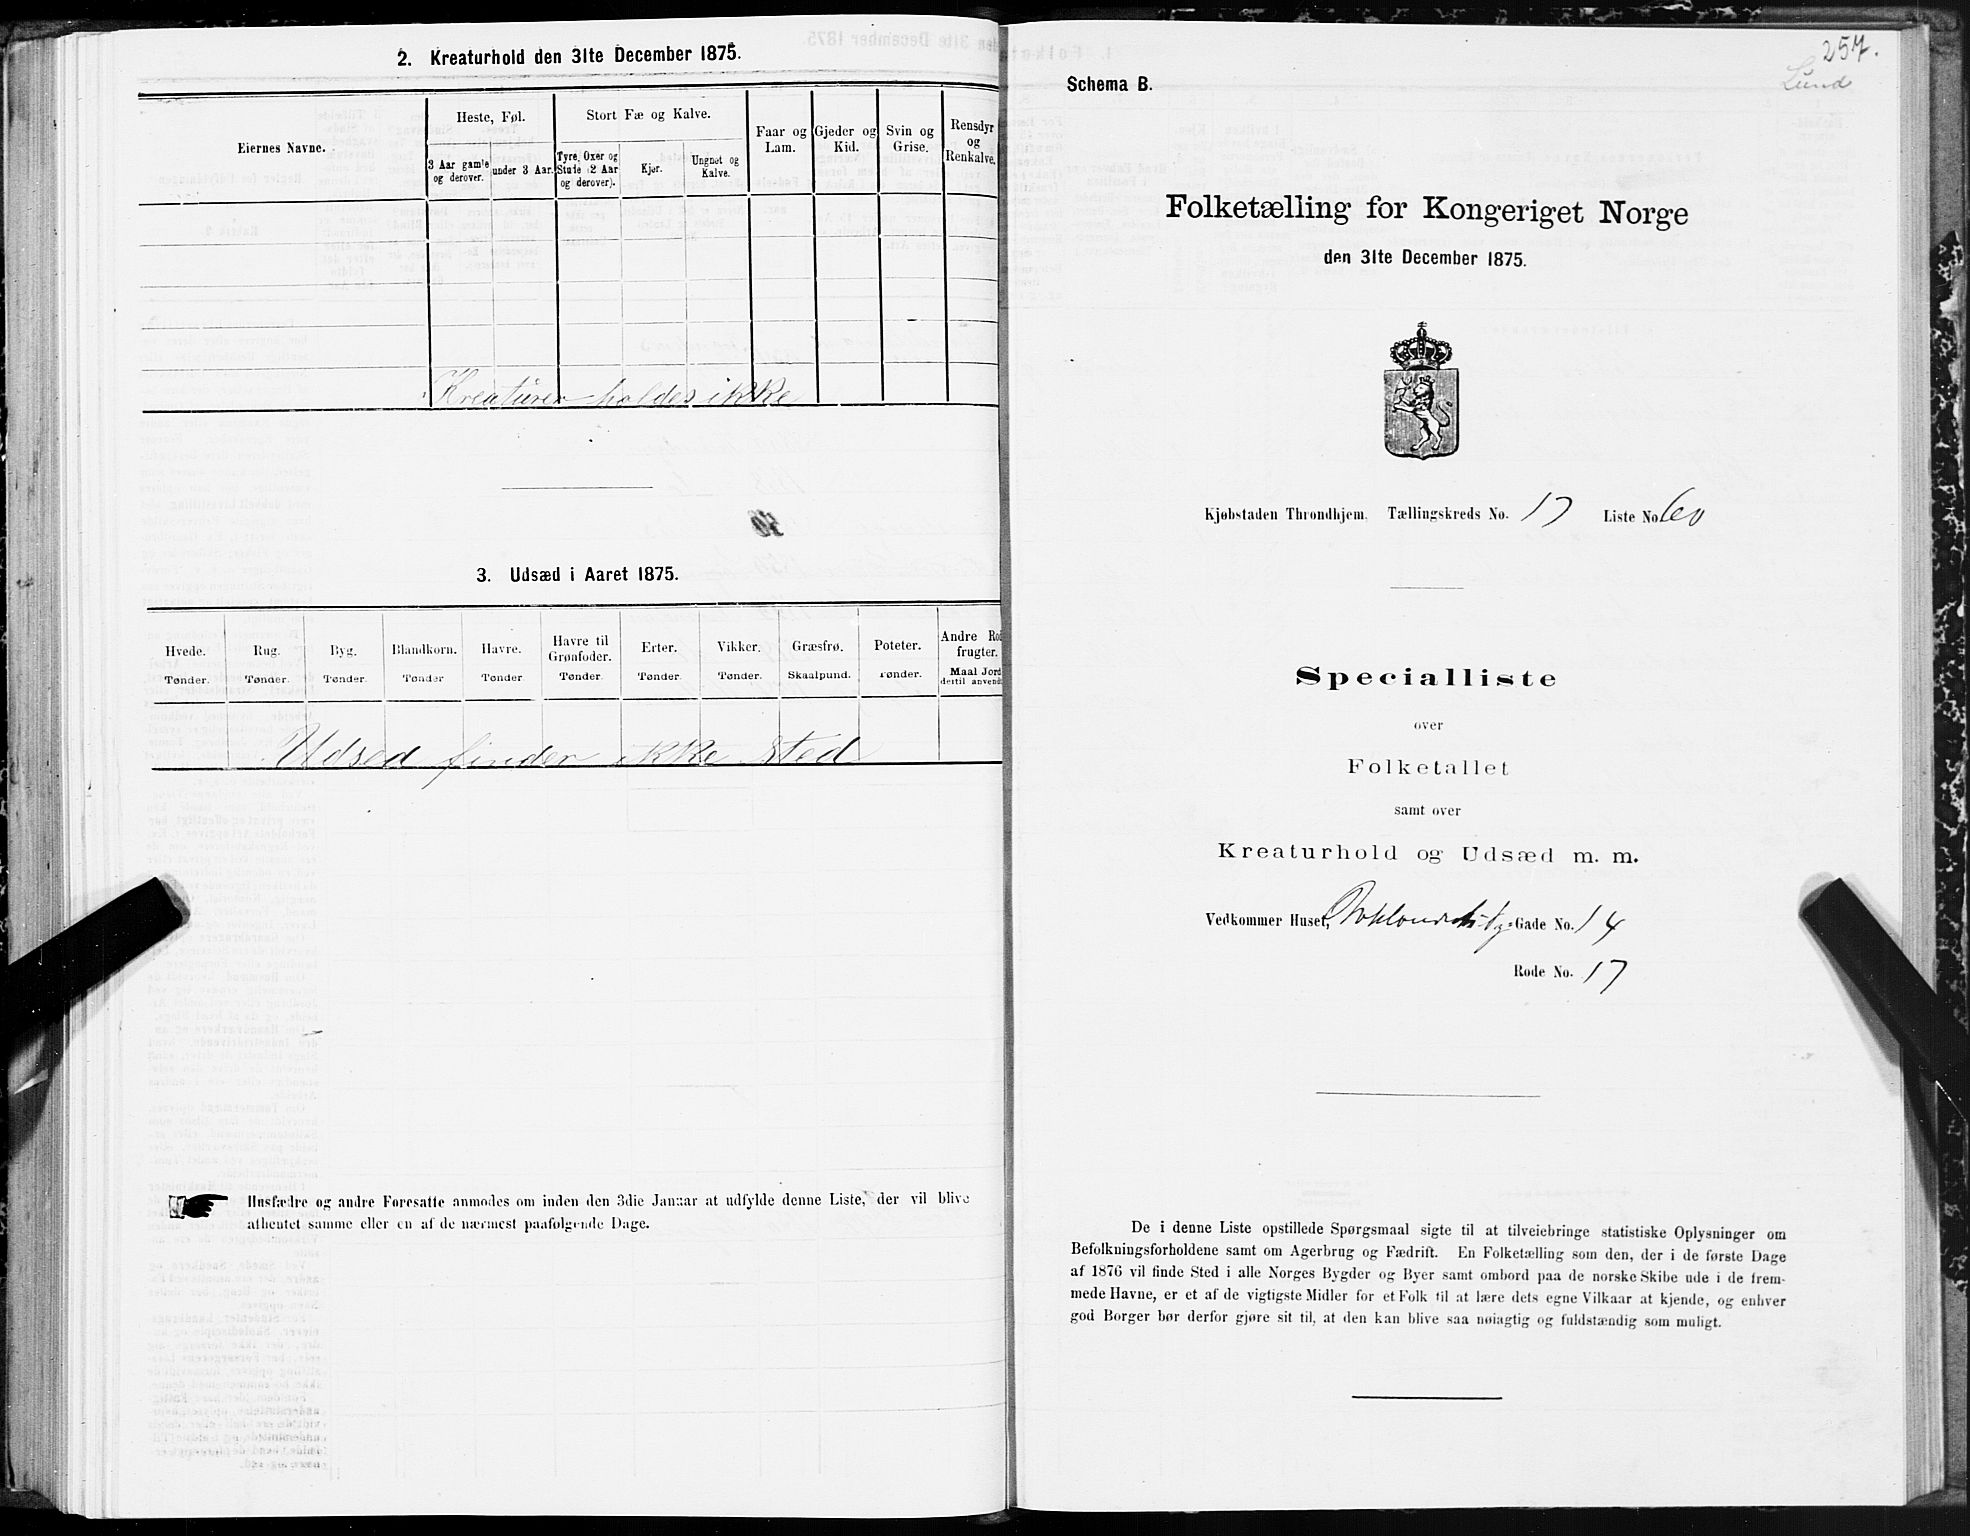 2. Kreaturhold den 31te December 1875.
Eiernes Navne.
Heste, Føl.
Stort Fæ og Kalve.
Faar og Lam.
Gjeder og Kid.
Svin og Grise.
Rensdyr og Renkalve.
3 Aar gamle og derover.
under 3 Aar.
Tyre, Oxer og Stude (2 Aar og derover).
Kjør.
Ungnøt og Kalve.
Kreaturer holdes ikke
3. Udsæd i Aaret 1875.
Hvede. Rug. Byg. Blandkorn. Havre. Havre til Grønfoder. Erter. Vikker. Græsfrø. Poteter. Andre Rod frugter.
Tønder. Tønder. Tønder. Tønder Tønder. Tønder. Tønder. Tønder. Skaalpund. Tønder. Maal Jord dertil anvendt
Udsæd finder ikke sted
Husfædre og andre Foresatte anmodes om inden den 3die Januar at udfylde denne Liste, der vil blive
afhentet samme eller en af de nærmest paafølgende Dage.
257.
Lund
Schema B.
Folketælling for Kongeriget Norge
den 31te December 1875.
Kjøbstaden Throndhjem. Tællingskreds No. 17 Liste No. 60
Specialliste
over
Folketallet
samt over
Kreaturhold og Udsæd m. m.
Vedkommer Huset, Gade No. 14
Rode No. 17
De i denne Liste opstillede Spørgsmaal sigte til at tilveiebringe statistiske Oplysninger om
Befolkningsforholdene samt om Agerbrug og Fædrift. En Folketælling som den, der i de første Dage
af 1876 vil finde Sted i alle Norges Bygder og Byer samt ombord paa de norske Skibe ude i de frem-
mede Havne, er et af de vigtigste Midler for et Folk til at lære dets egne Vilkaar at kjende, og enhver
god Borger bør derfor gjøre sit til, at den kan blive saa nøiagtig og fuldstændig som muligt.